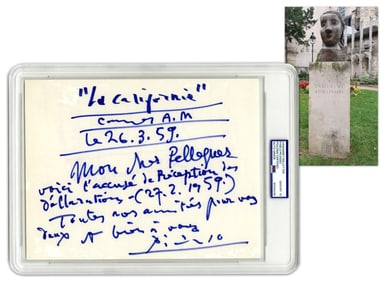 "La Californie"
Cannes A.M
le 26.3.59.
Mon cher Pellequer
voici l'accusé de Réception des
déclarations - (27.2.1959)
Toutes nos amitiés pour vous
deux et bien à vous
Picasso